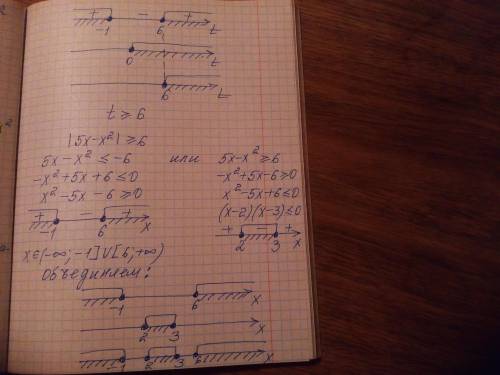 + − +
-1 6 t
0 t
6 t
t ≥ 6
|5x-x²| ≥ 6
5x-x² ≤ -6 или 5x-x² ≥ 6
-x²+5x+6 ≤ 0 -x²+5x-6 ≥ 0
x²-5x-6 ≥ 0 x²-5x+6 ≤ 0
(x-2)(x-3) ≤ 0
+ − + + − +
-1 6 x 2 3 x
x∈(-∞;-1]∪[6;+∞)
Объединяем:
-1 6 x
2 3 x
-1 2 3 6 x